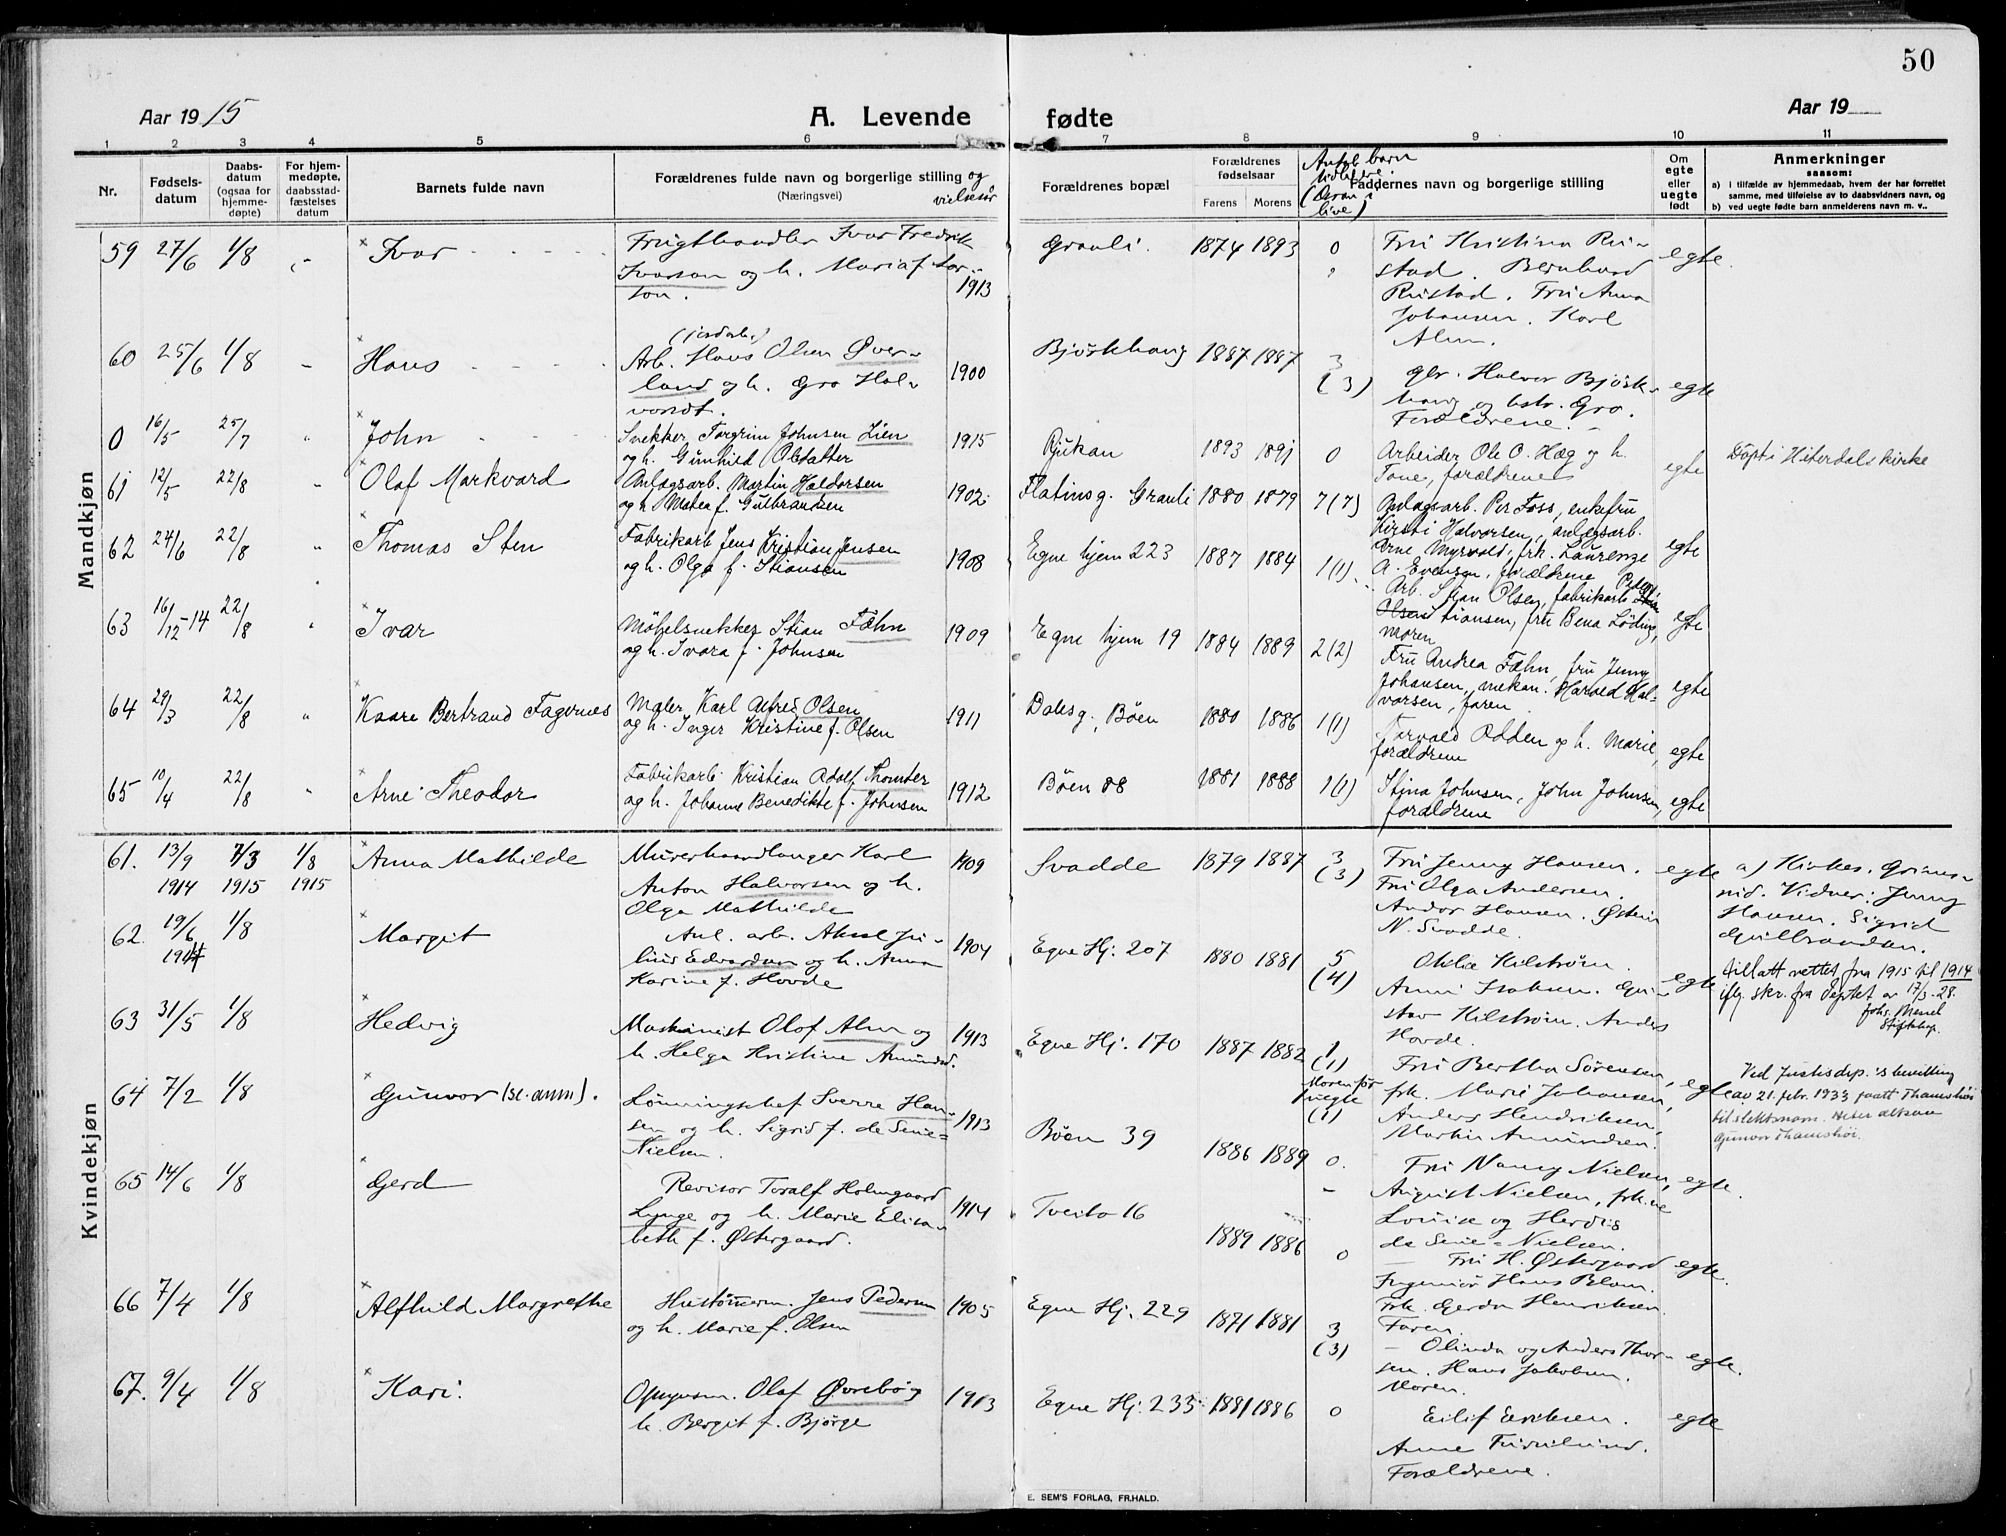 50
Aar 1915
A. Levende
fødte
Aar 19
1 2 3 4 5 6 7 8 9 10 11
Nr.
Fødsels-
datum
Daabs-
datum
(ogsaa for
hjemme-
døpte)
For hjem-
medøpte,
daabsstad-
fæstelses
datum
Barnets fulde navn
Forældrenes fulde navn og borgerlige stilling og
(Næringsvei)
vielsesår
Forældrenes bopæl
Forældrenes
fødselsaar
Farens Morens
Antal barn
(Derav i
live)
Faddernes navn og borgerlige stilling
Om
egte
eller
uegte
født
Anmerkninger
saasom:
a) i tilfælde av hjemmedaab, hvem der har forrettet
samme, med tilføielse av to daabsvidners navn, og
b) ved uegte fødte barn anmelderens navn m. v..
Mandkjøn
59 27/6 1/8 Ivar
Frugthandler Ivar Fredrik
Ivarson og h. Maria f. Lar-
son.
1913
Granli. 1874 1893 0
Fru Kristina Ru-
stad. Bernhard
Rustad. Fru Anna
Johansen. Karl
Alm.
egte.
60 25/6 1/8 Hans
Arb. Hans Olsen Øver-
land og h. Gro Hal-
vorsdt.
1900
Bjørkhaug 1887 1887 3
(3)
gbr. Halvor Bjørk-
haug og hstr. Gro.
Forældrene.
egte
0 16/5 25/7 John
Snekker Torgrim Johnsen Lien
og h. Gunhild Olsdatter
1915
Rjukan 1893 1891 0
Arbeider Ole O. Hæg og h.
Tone, forældrene
egte
Døpt i Hiterdals kirke
61 12/5 22/8 Olaf Markvard
Anlægsarb. Martin Haldorsen
og h. Matea f. Gulbrandsen
1902
Flatinsg. Granli 1880 1879 7(7)
Anlægsarb. Per Foss, enkefru
Kirsti Halvorsen, anlægsarb.
Arne Myrvold, frk. Laurenze
A. Evensen, forældrene
egte
62 24/6 22/8 Thomas Sten
Fabrikarb Jens Kristian Jensen
og h. Olga f. Stiansen
1908
Egne hjem 223 1887 1884 1(1)
Arb. Stian Olsen, fabrikarb. Peder
Olsen Stiansen, fru Bena Løding,
moren
egte
63 16/12-14 22/8 Ivar
Møbelsnekker Stian Fæhn
og h. Ivara f. Johnsen
1909
Egne hjem 19 1884 1889 2(2)
Fru Andrea Fæhn, fru Jenny
Johansen, mekan. Harald Hal-
vorsen, faren
egte
64 29/3 22/8 Kaare Bertrand Fagernes
Maler Karl Alfred Olsen
og h. Inger Kristine f. Olsen
1911
Dalsg., Bøen 1880 1886 1(1)
Torvald Odden og h. Marie,
forældrene
egte
65 10/4 22/8 Arne Theodor
Fabrikarb. Kristian Adolf Thomter
og h. Johanne Benedikte f. Johnsen
1912
Bøen 88 1881 1888 1(1)
Stina Johnsen, John Johnsen,
forældrene
egte
Kvindekjøn
61. 13/9 7/3 1/8 Anna Mathilde
1914 1915 1915
Murerhaandlanger Karl
Anton Halvorsen og h.
Olga Mathilde
1909
Svadde 1879 1887 3
(3)
Fru Jenny Hansen.
Fru Olga Andersen.
Andor Hansen. Østein
N. Svadde.
egte
a) Kirkes. Grims-
rud. Vidner: Jenny
Hansen. Sigrid
Gulbrandsen.
62. 19/6 1/8 Margit
1914
Anl. arb. Aksel Ju-
lius Edvardsen og h. Anna
Karine f. Hovde
1904
Egne Hj. 207 1880 1881 5
(4)
Oklea Hilstrøm.
Anni Isaksen. Gu-
stav Hilstrøm. Anders
Hovde.
egte
tillatt rettet fra 1915 til 1914
iflg. skr. fra Deptet av 17/3-28.
Stiftskap.
63 31/5 1/8 Hedvig
Maskinist Olaf Alm og
h. Helga Kristine Amundsd.
1913
Egne Hj. 170 1887 1882 1
(1)
Fru Bertha Sørensen,
frk. Marie Johansen,
Anders Hendriksen,
Martin Amundsen.
egte
64 7/2 1/8 Gunvor (se anm).
Lønningschef Sverre Han-
sen og h. Sigrid f. de Seue-
Nielsen.
1913
Moren før
uegte
(1)
Bøen 39 1886 1889 0.
Fru Nancy Nielsen,
August Nielsen, frk.ne
Louise og Herdis
de Seue-Nielsen.
egte.
Ved Justisdep.'s bevilling
av 21. febr. 1933 tatt Thamshøi
til slektsnavn. Heter altsaa
Gunvor Thamshøi.
65 14/6 1/8 Gerd
Revisor Toralf Holmgaard
Lynge og h. Marie Elisa-
beth f. Østergaard.
1914
Tveito 16 1889 1886 0
Fru H. Østergaard
Ingeniør Hans Blom.
Frk. Gerda Henriksen.
Faren.
egte.
66 7/4 1/8 Alfhild Margrethe
Hustømerm. Jens Pedersen
og h. Marie f. Olsen
1905
Egne Hj. 229 1871 1881 3
(3)
Olinda og Anders Thor-
sen. Hans Jakobsen.
Moren.
egte.
67. 9/4 1/8 Kari.
Opsynsm. Olaf Øvrebø og
h. Bergit f. Bjørge
1913
Egne Hj. 235 1881 1886 0
Eilif Eriksen.
Anne Fridlund.
Forældrene.
egte
E. SEM'S FORLAG, FR.HALD.